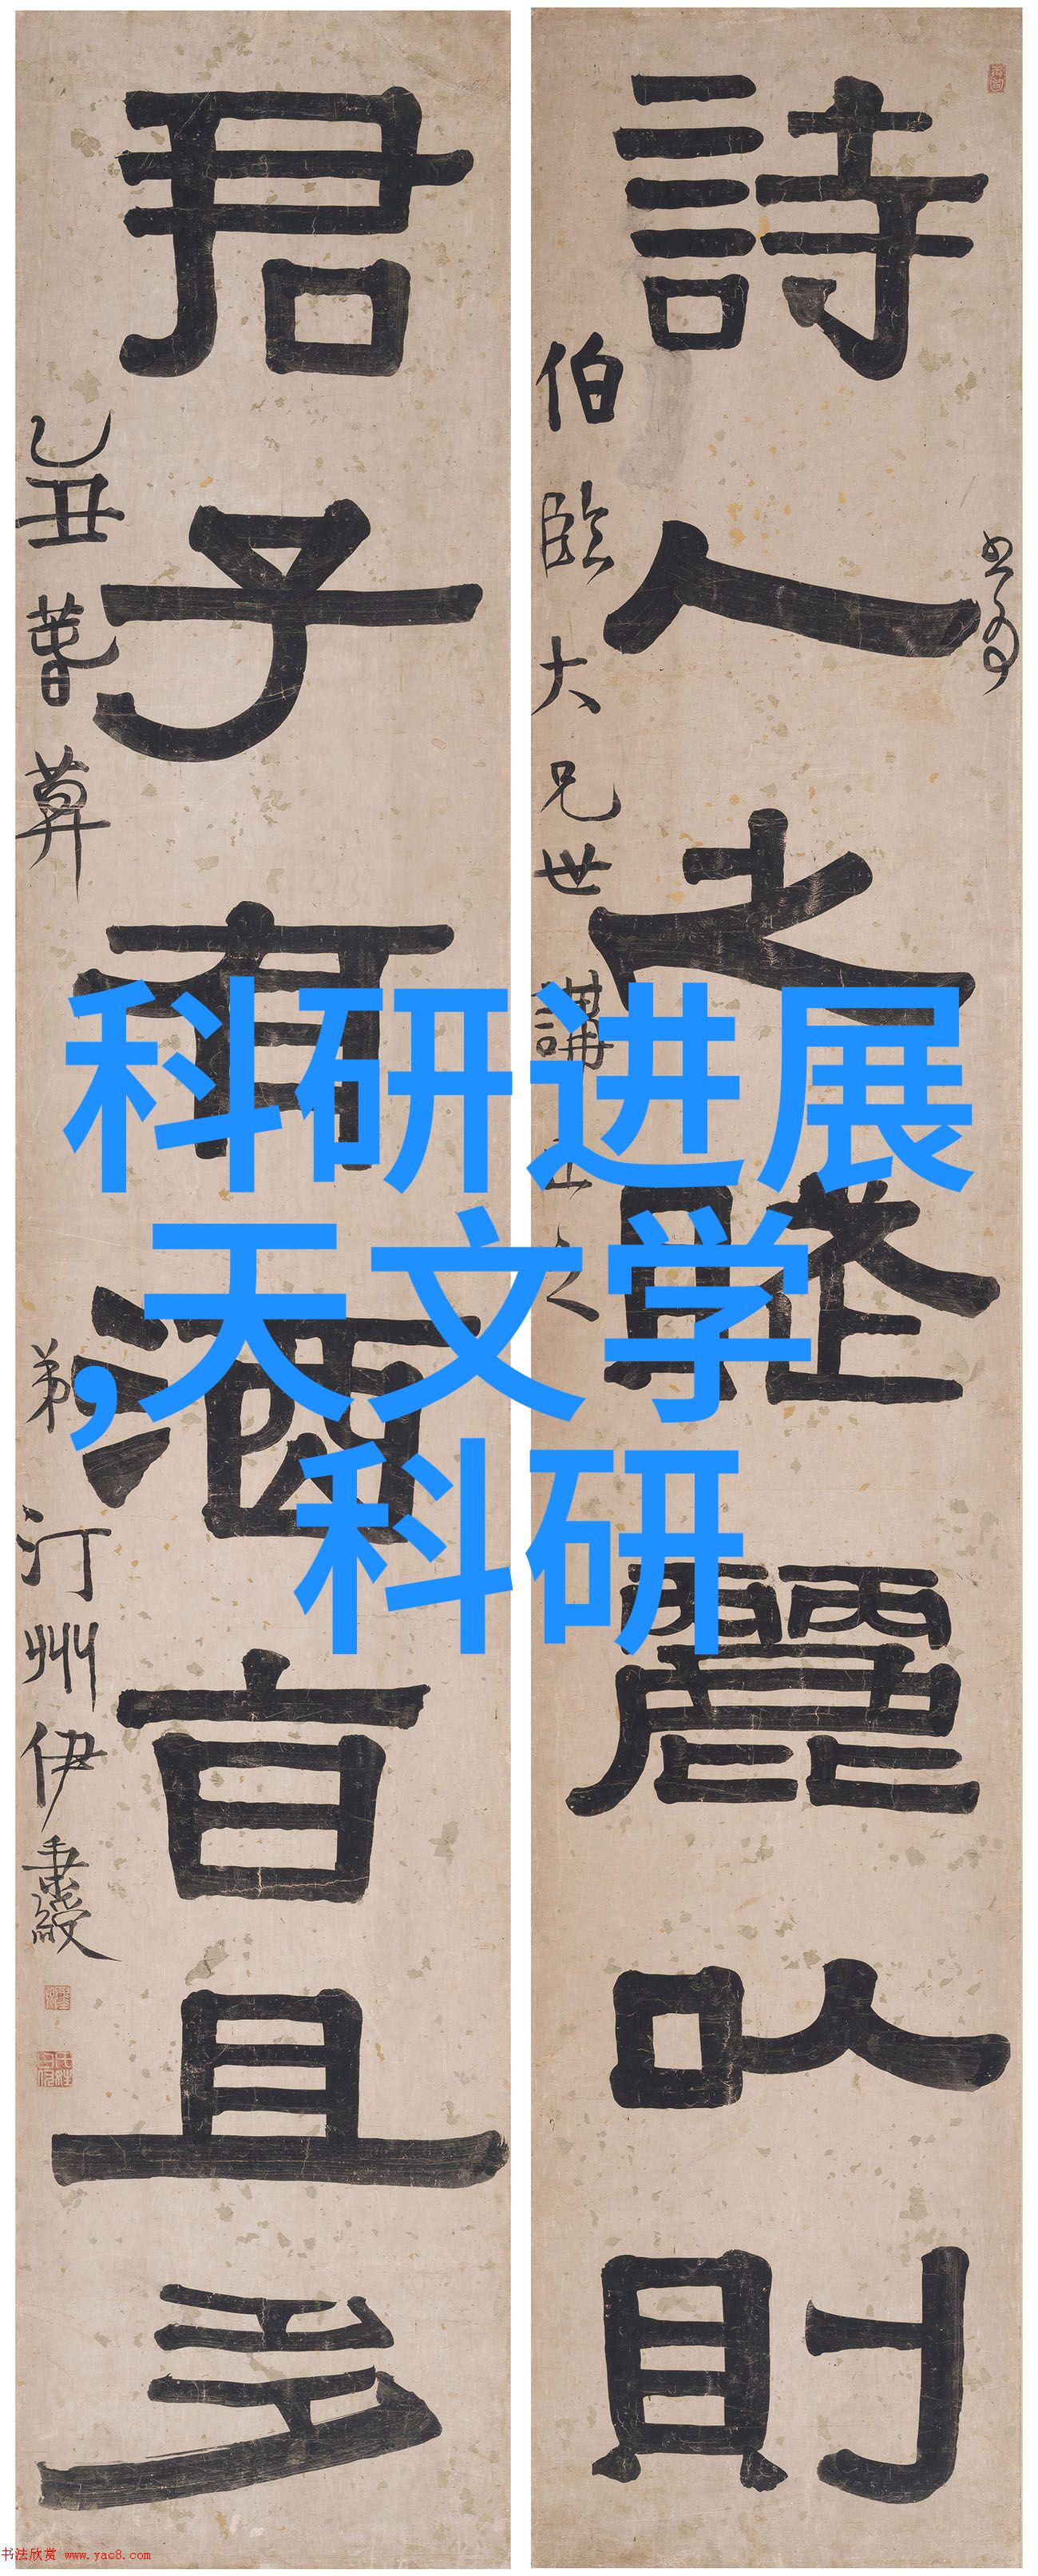 詩人之賦麗以則
君子有酒旨且多
伯臨大兄世講正之
弟汀州伊秉綬
科研进展
,天文学
科研
书法欣赏 www.yac8.com